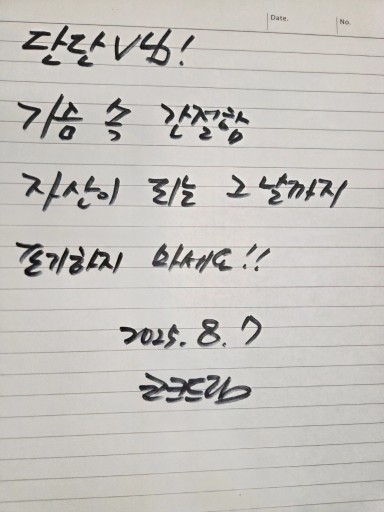 Date.
No.
단단V님!
가슴 속 간절함
자산이 되는 그 날까지
포기하지 마세요!!
2025. 8. 7
글로드림